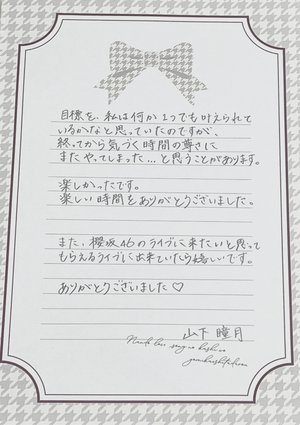 目標を、私は何か1つでも叶えられて
いるかなと思っていたのですが、
終ってから気づく時間の尊さに
またやってしまった…と思うことがあります。
楽しかったです。
楽しい時間をありがとうございました。
また、櫻坂46のライブに来たいと思って
もらえるライブに出来ていたら嬉しいです。
ありがとうございました♡
山下 瞳月